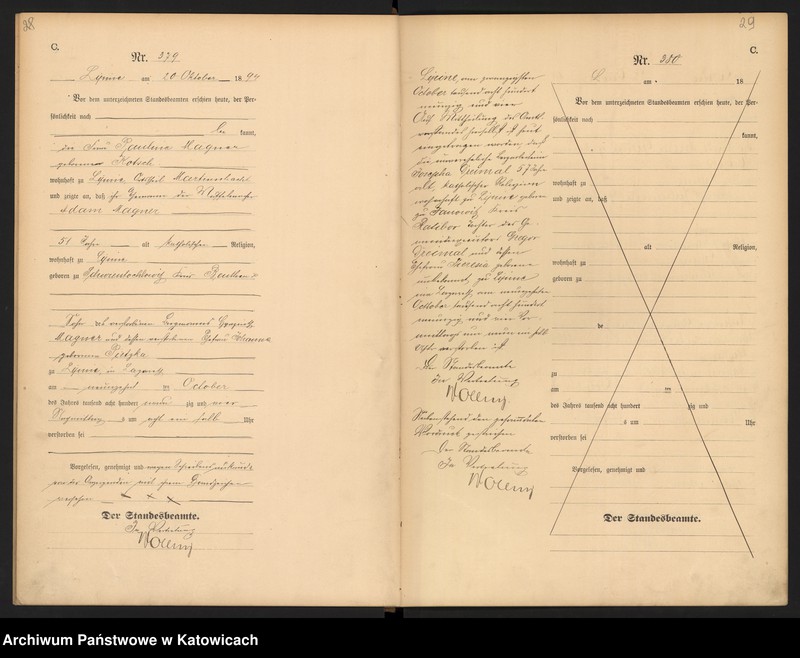 28
C.
Nr. 279
Lipine am 20 Oktober 1894
Vor dem unterzeichneten Standesbeamten erschien heute, der Per-
sönlichkeit nach
kannt,
die Frau Pauline Magner
geborene
wohnhaft zu Lipine
und zeigte an, daß ihr Ehemann der
Adam Magner
51 Jahre alt katholischer Religion,
wohnhaft zu Lipine
geboren zu Schwientochlowitz Kreis Beuthen
Sohn des verstorbenen
Magner und dessen verstorbenen Ehefrau Johanna
geborenen
zu Lipine, im Lazareth
am neunzehnten October
des Jahres tausend acht hundert neun zig und vier
Vormittags um acht ein halb Uhr
verstorben sei
Vorgelesen, genehmigt und wegen Schreibensunkunde
von der Anzeigenden mit ihrem Handzeichen
versehen x x x
Der Standesbeamte.
In Vertretung
29
C.
Nr. 280
am 18
Vor dem unterzeichneten Standesbeamten erschien heute, der Per-
sönlichkeit nach
kannt,
wohnhaft zu
und zeigte an, daß
alt Religion,
wohnhaft zu
geboren zu
de
zu
am ten
des Jahres tausend acht hundert zig und
s um Uhr
verstorben sei
Vorgelesen, genehmigt und
Der Standesbeamte.
Lipine, am zwanzigsten
October tausend acht hundert
neunzig und vier
Auf Mittheilung des
vorstandes hierselbst ist heut
eingetragen worden, daß
die unverehelichte
Josepha 57 Jahre
alt katholischer Religion
wohnhaft zu Lipine geboren
zu Janowitz Kreis
Ratibor Tochter des
Gregor
und dessen
Ehefrau Theresia geborene
unbekannt, zu Lipine
im Lazareth, am neunzehnten
October tausend acht hundert
neunzig und vier Vor-
mittags um neun ein halb
Uhr verstorben ist
Der Standesbeamte
In Vertretung
Nebenstehend den gesammten
Vordruck gestrichen
Der Standesbeamte
In Vertretung
Archiwum Państwowe w Katowicach